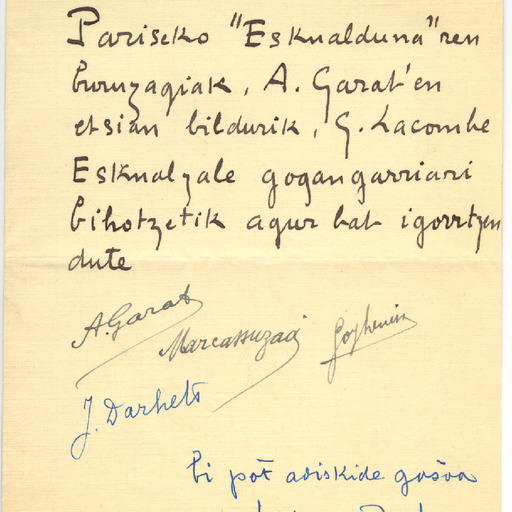 Pariseko "Eskualduna"ren
buruzagiak, A. Garat'en
etsian bildurik, G. Lacombe
Eskualzale gogangarriari
bihotzetik agur bat igorrtzen
dute
A. Garat
Marcassuzaa
J. Darhets
bi pot adiskide goxoa